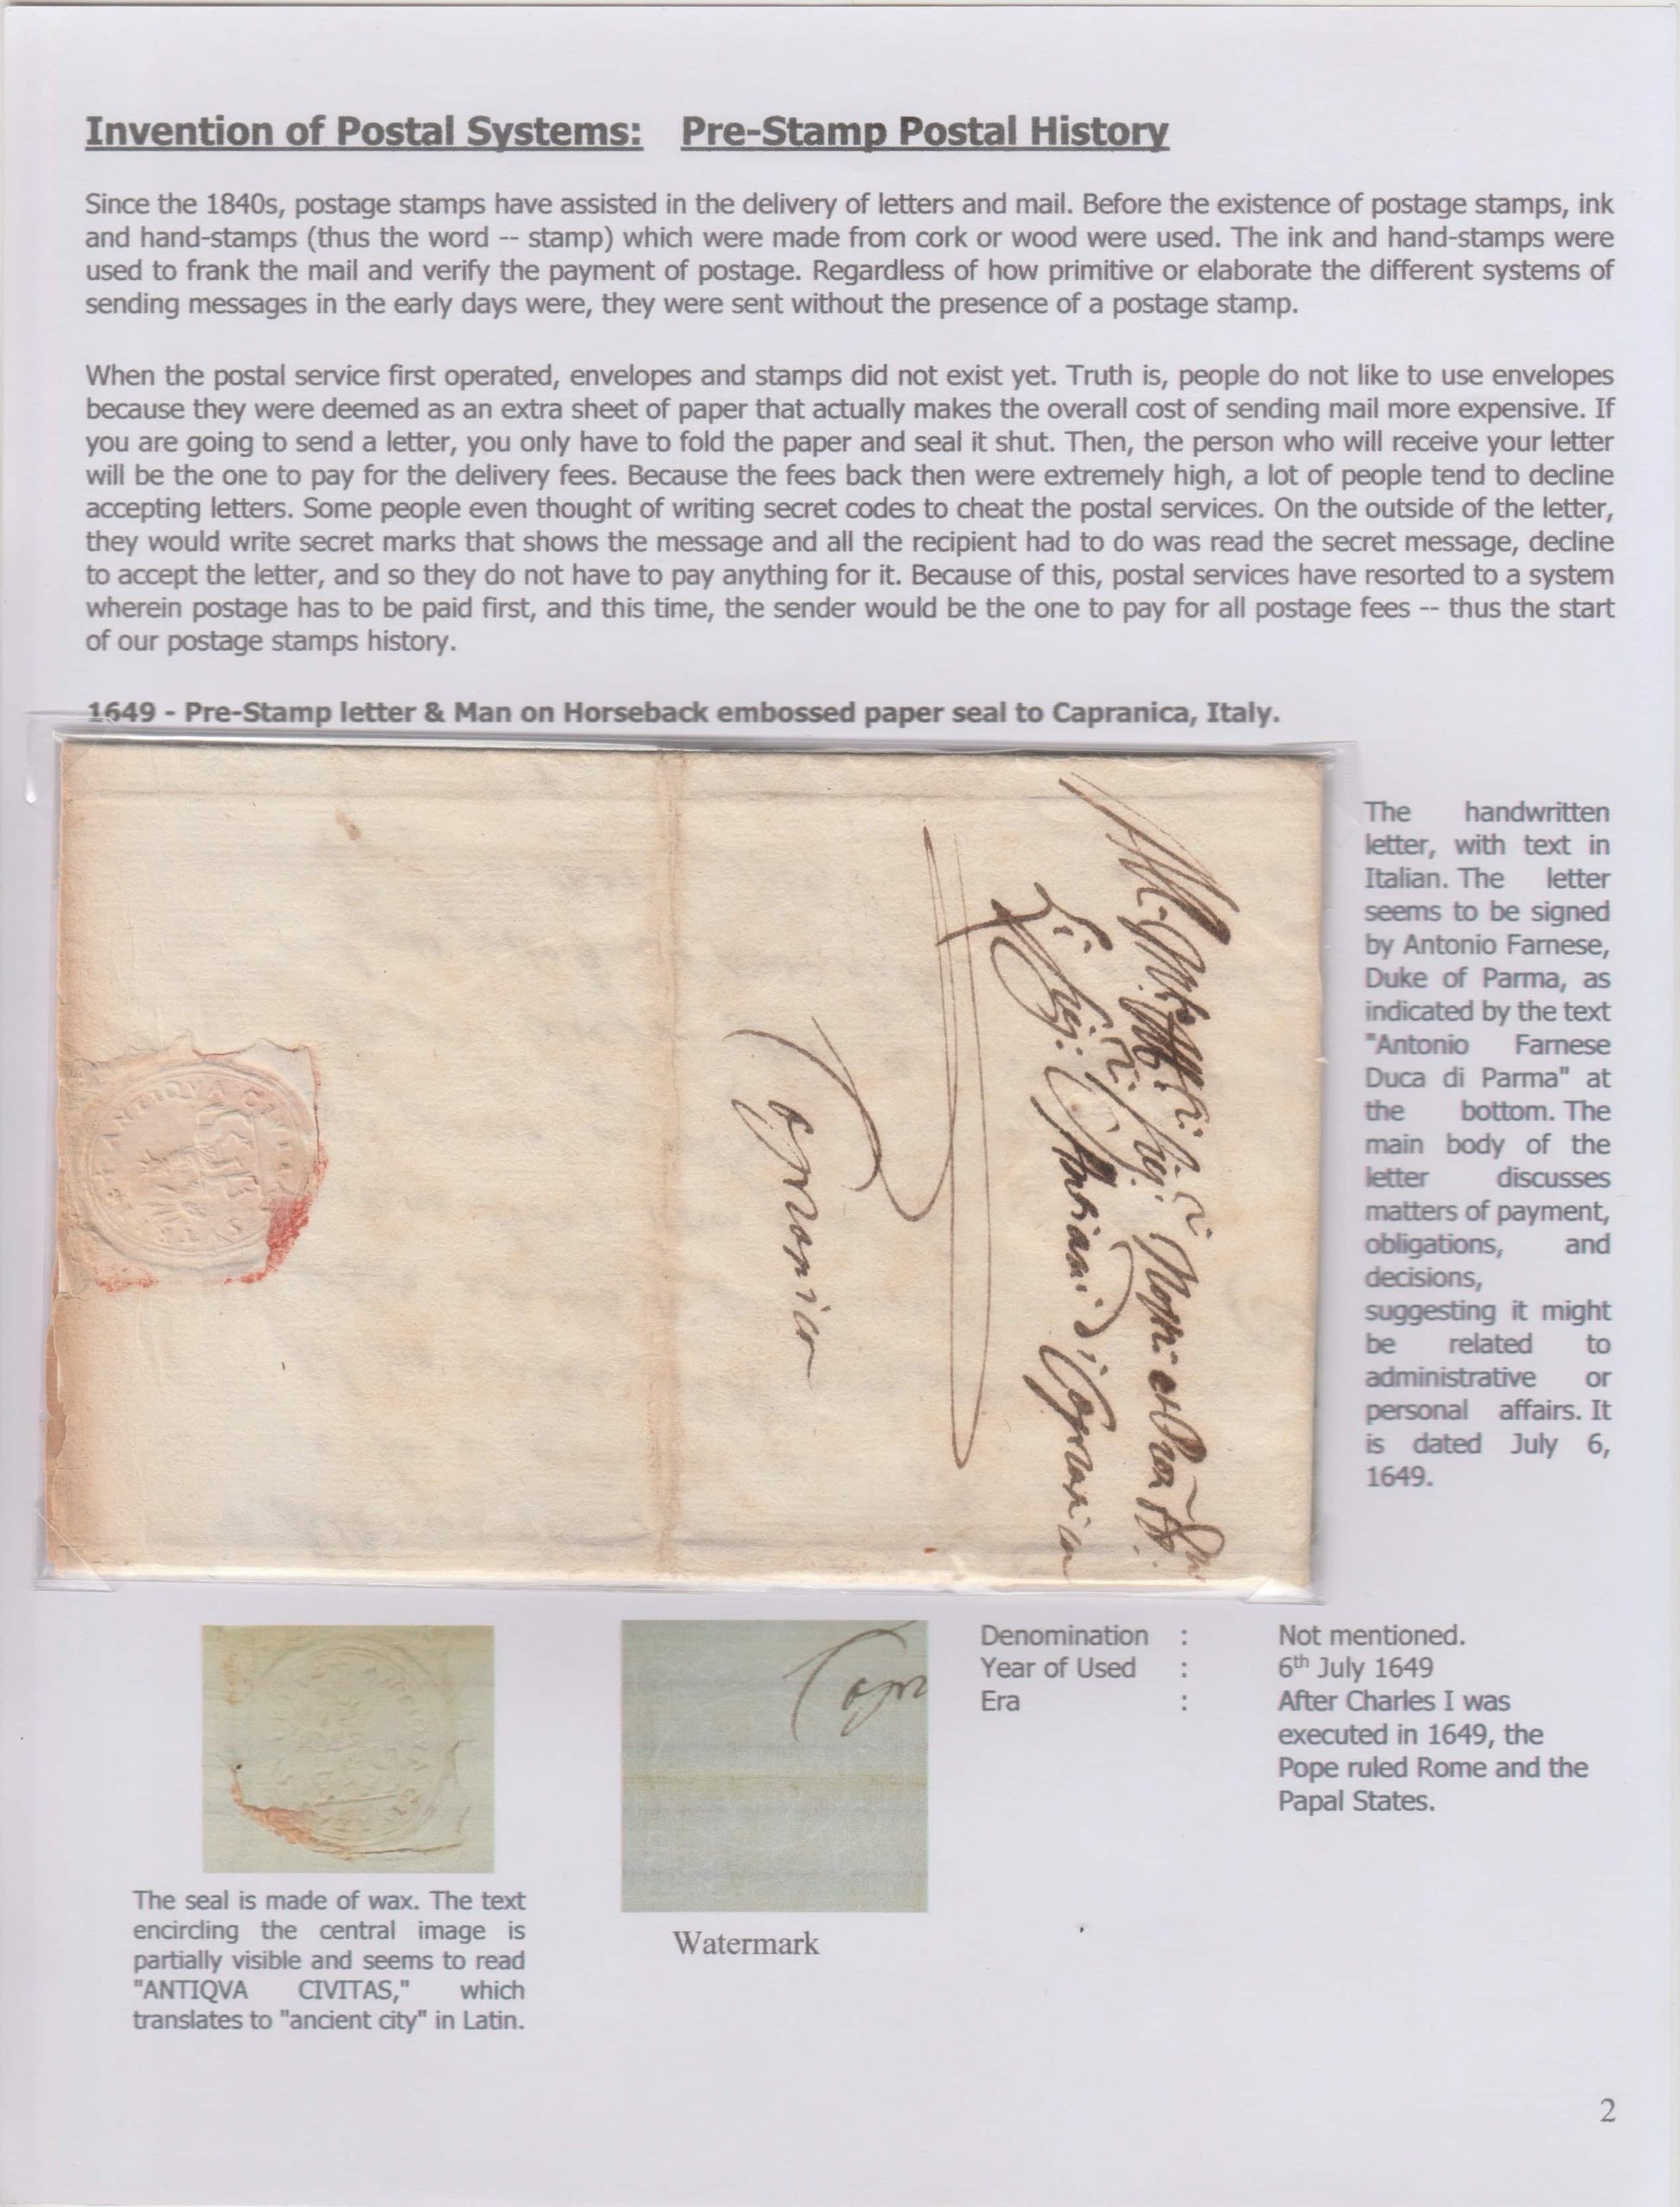 Invention of Postal Systems: Pre-Stamp Postal History
Since the 1840s, postage stamps have assisted in the delivery of letters and mail. Before the existence of postage stamps, ink
and hand-stamps (thus the word -- stamp) which were made from cork or wood were used. The ink and hand-stamps were
used to frank the mail and verify the payment of postage. Regardless of how primitive or elaborate the different systems of
sending messages in the early days were, they were sent without the presence of a postage stamp.
When the postal service first operated, envelopes and stamps did not exist yet. Truth is, people do not like to use envelopes
because they were deemed as an extra sheet of paper that actually makes the overall cost of sending mail more expensive. If
you are going to send a letter, you only have to fold the paper and seal it shut. Then, the person who will receive your letter
will be the one to pay for the delivery fees. Because the fees back then were extremely high, a lot of people tend to decline
accepting letters. Some people even thought of writing secret codes to cheat the postal services. On the outside of the letter,
they would write secret marks that shows the message and all the recipient had to do was read the secret message, decline
to accept the letter, and so they do not have to pay anything for it. Because of this, postal services have resorted to a system
wherein postage has to be paid first, and this time, the sender would be the one to pay for all postage fees -- thus the start
of our postage stamps history.
1649 - Pre-Stamp letter & Man on Horseback embossed paper seal to Capranica, Italy.
Capranica
The handwritten
letter, with text in
Italian. The letter
seems to be signed
by Antonio Farnese,
Duke of Parma, as
indicated by the text
"Antonio Farnese
Duca di Parma" at
the bottom. The
main body of the
letter discusses
matters of payment,
obligations, and
decisions,
suggesting it might
be related to
administrative or
personal affairs. It
is dated July 6,
1649.
ANTIQVA
Capr
Denomination : Not mentioned.
Year of Used : 6th July 1649
Era : After Charles I was
executed in 1649, the
Pope ruled Rome and the
Papal States.
The seal is made of wax. The text
encircling the central image is
partially visible and seems to read
"ANTIQVA CIVITAS," which
translates to "ancient city" in Latin.
Watermark
2